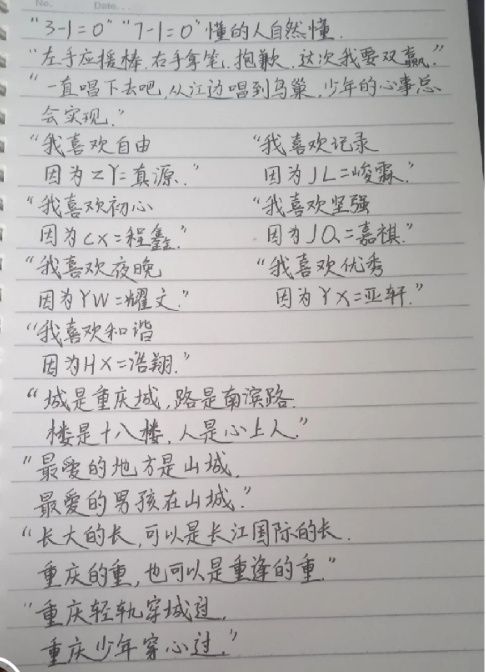 No. Date.
"3-1=0" "7-1=0"懂的人自然懂.
"左手应援棒,右手拿笔,抱歉,这次我要双赢."
"一直唱下去吧,从江边唱到鸟巢,少年的心事总
会实现."
"我喜欢自由 "我喜欢记录
因为ZY=真源." 因为JL=峻霖."
"我喜欢初心 "我喜欢坚强
因为CX=程鑫." 因为JQ=嘉祺."
"我喜欢夜晚 "我喜欢优秀
因为YW=耀文." 因为YX=亚轩."
"我喜欢和谐
因为HX=浩翔."
"城是重庆城,路是南滨路.
楼是十八楼,人是心上人."
"最爱的地方是山城,
最爱的男孩在山城."
"长大的长,可以是长江国际的长.
重庆的重,也可以是重逢的重."
"重庆轻轨穿城过,
重庆少年穿心过."